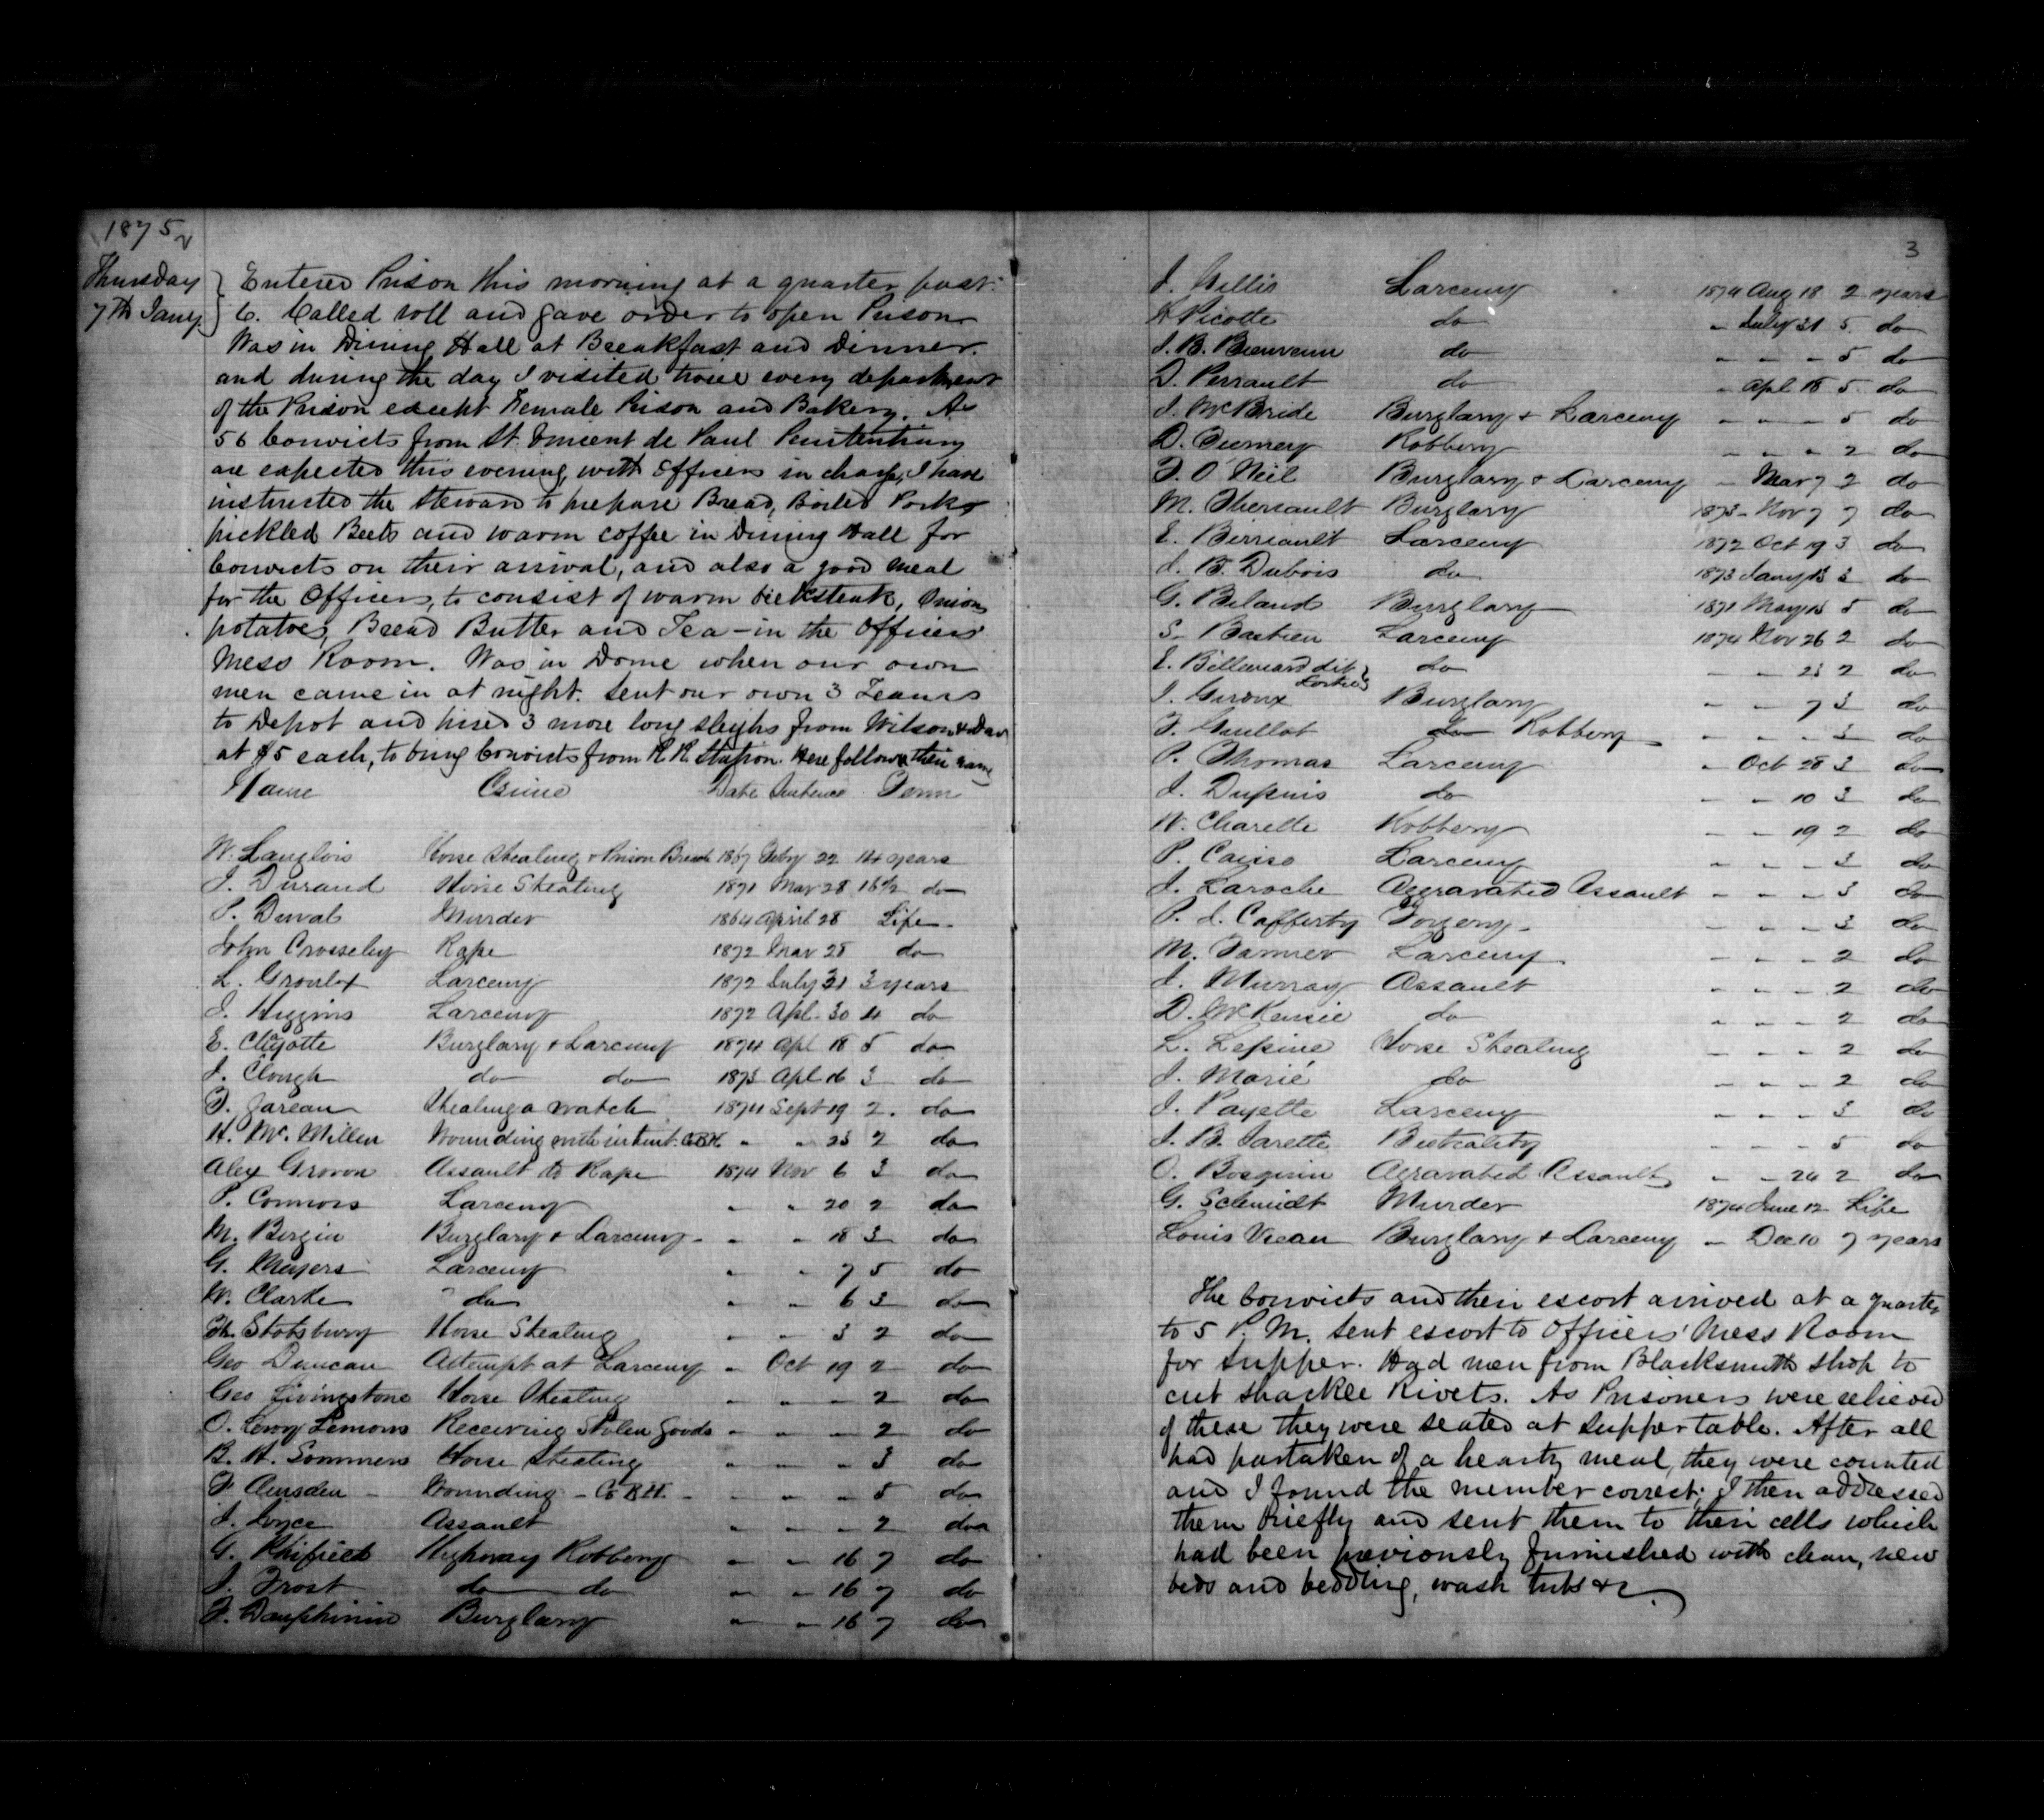 1875
2
Thursday
7th Jany.
Entered Prison this morning at a quarter past
6. Called roll and gave order to open Prison
Was in Dining Hall at Breakfast and Dinner.
and during the day I visited twice every department
of the Prison except Female Prison and Bakery. As
56 Convicts from St. Vincent de Paul Penitentiary
are expected this evening, with Officers in charge, I have
instructed the Steward to prepare Bread, Boiled Pork
pickled Beets and warm coffee in Dining Hall for
Convicts on their arrival, and also a good meal
for the Officers, to consist of warm Beefsteak, Onions
potatoes, Bread Butter and Tea - in the Officers
Mess Room. Was in Dome when our own
men came in at night. Sent our own 3 Teams
to Depot and hired 3 more long sleighs from Wilson &
at $5 each, to bring Convicts from R.R. Station. Here follows their name
Name Crime Date Sentence Term
W. Langlois Horse Stealing & Prison Breach 1867 Feby 22 14 years
J. Durand Horse Stealing 1871 Mar 28 16½ do
P. Duval Murder 1864 April 28 Life
John Crosseley Rape 1872 Mar 28 do
L. Groulx Larceny 1872 July 31 3 years
J. Higgins Larceny 1872 Apl. 30 4 do
E. Clyotte Burglary & Larceny 1874 Apl 18 5 do
J. Clough do do 1873 Apl 16 3 do
F. Gareau Stealing a watch 1874 Sept 19 2 do
H. McMillen Wounding with intent. G.B.H. " " 23 2 do
Alex Grovon Assault to Rape 1874 Nov 6 3 do
P. Connors Larceny " " 20 2 do
M. Bergin Burglary & Larceny " " 18 3 do
G. Meyers Larceny " " 7 5 do
W. Clarke do " " 6 3 do
Stotsbury Horse Stealing " " 3 2 do
Geo Duncan Attempt at Larceny " Oct 19 2 do
Geo Livingstone Horse Stealing " " " 2 do
O. Leroy Lemons Receiving Stolen Goods " " " 2 do
B. H. Sommers Horse Stealing " " " 3 do
F Amsden Wounding - G.B.H. " " " 5 do
J. Joyce Assault " " " 2 do
G. Highway Robbery " " 16 7 do
J. Frost do do " " 16 7 do
F. Dauphinin Burglary " " 16 7 do
3
J. Willis Larceny 1874 Aug 18 2 years
Picotte do " July 31 5 do
J. B. Bienvenu do " " " 5 do
D. Perrault do " Apl 18 5 do
J. McBride Burglary & Larceny " " " 5 do
D. Robbery " " " 2 do
F. O'Neil Burglary & Larceny " Mar 7 2 do
M. Theriault Burglary 1873 Nov 7 7 do
E. Birriault Larceny 1872 Oct 19 3 do
J. B. Dubois do 1873 Jany 13 3 do
G. Beland Burglary 1871 May 15 5 do
S. Bastien Larceny 1874 Nov 26 2 do
E. dit do " " 23 2 do
J. Giroux Burglary " " 7 3 do
F. Guillot do Robbery " " " 3 do
P. Thomas Larceny " Oct 28 3 do
J. Dupuis do " " 10 3 do
N. Charette Robbery " " 19 2 do
P. Larceny " " " 3 do
J. Laroche Aggravated Assault " " " 3 do
P. J. Cafferty Forgery " " " 3 do
M. Farmer Larceny " " " 2 do
J. Murray Assault " " " 2 do
D. McKensie do " " " 2 do
L. Lepine Horse Stealing " " " 2 do
J. Marié do " " " 2 do
J. Payette Larceny " " " 3 do
J. B. Jarette " " " 5 do
O. Bosquin Agravated Assault " " 24 2 do
G. Schmidt Murder 1874 June 12 Life
Louis Viau Burglary & Larceny " Dec 10 7 years
The Convicts and their escort arrived at a quarter
to 5 P. M. Sent escort to Officers' Mess Room
for Supper. Had men from Blacksmith shop to
cut shackle Rivets. As Prisoners were relieved
of these they were seated at Supper table. After all
had partaken of a hearty meal, they were counted
and I found the number correct; I then addressed
them briefly and sent them to their cells which
had been previously furnished with clean, new
beds and bedding, wash tubs &c.